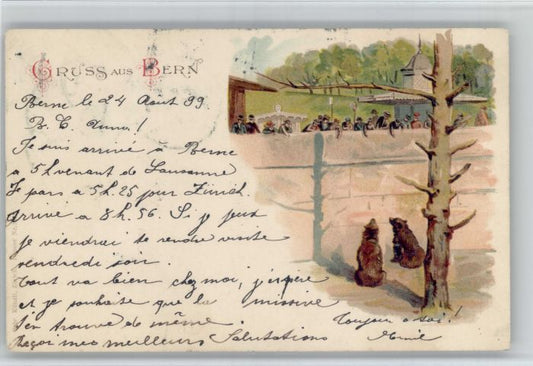 GRUSS AUS BERN
Berne le 24 Août 99.
B. C. Anna!
Je suis arrivé à Berne
a 5h venant de Lausanne
Je pars a 5h.25 pour Zürich
arrive a 8h.56. Si je peux
je viendrai te rendre visite
vendredi soir.
Tout va bien chez moi, j'espère
et je souhaite que la missive
t'en trouve de même.
Reçois mes meilleurs Salutations
Toujour a toi!